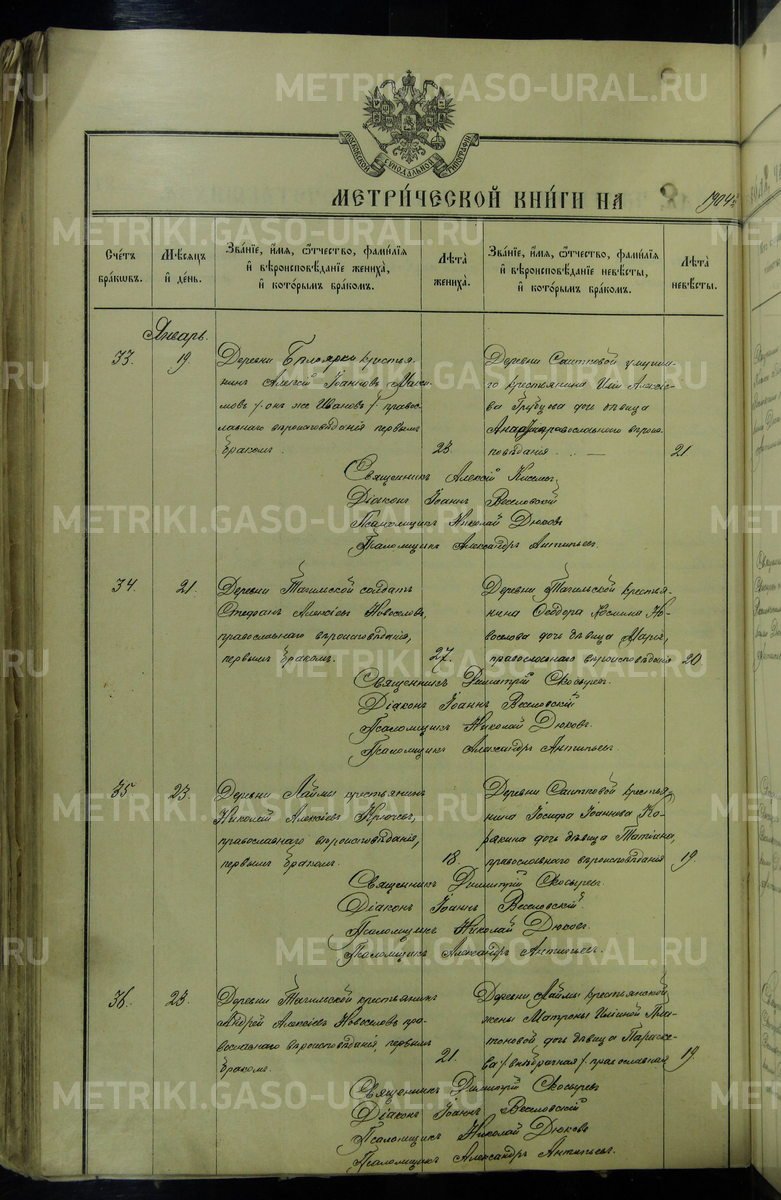 МОСКОВСКОЙ СѴНОДАЛЬНОЙ ТИПОГРАФІИ
МЕТРИ́ЧЕСКОЙ КНИ́ГИ НА 1904 г.
Сче́тъ бра́ковъ.
Мѣ́сяцъ и҆ де́нь.
Зва́нїе, и҆́мѧ, ѻ҆́тчество, фами́лїѧ
и҆ вѣроисповѣ́данїе жениха̀,
и҆ кото́рымъ бра́комъ.
Лѣ́та жениха̀.
Зва́нїе, и҆́мѧ, ѻ҆́тчество, фами́лїѧ
и҆ вѣроисповѣ́данїе невѣ́сты,
и҆ кото́рымъ бра́комъ.
Лѣ́та невѣ́сты.
Январь.
33.
19.
Деревни Белоярки крестья-
нинъ Алексій Іоанновъ Макси-
мовъ /-онъ же Ивановъ /- правос-
лавнаго вѣроисповѣданія первымъ
бракомъ.
23.
Деревни Саитковой умерша-
го крестьянина Иліи Алексіе-
ва дочь дѣвица
православнаго вѣроис-
повѣданія
21
Священникъ Алексій
Діаконъ Іоаннъ Веселовскій
Псаломщикъ Николай Дюковъ
Псаломщикъ Александръ Антипьевъ.
34.
21.
Деревни Тагильской солдатъ
Стефанъ Алексіевъ Новоселовъ,
православнаго вѣроисповѣданія,
первымъ бракомъ.
27.
Деревни Тагильской крестья-
нина Ѳеодора Космина Но-
воселова дочь дѣвица Марія,
православнаго вѣроисповѣданія
20.
Священникъ Димитрій Скосыревъ.
Діаконъ Іоаннъ Веселовскій
Псаломщикъ Николай Дюковъ.
Псаломщикъ Александръ Антипьевъ.
35
23.
Деревни Лаймы крестьянинъ
Николай Алексіевъ Крючевъ,
православнаго вѣроисповѣданія,
первымъ бракомъ.
18.
Деревни Саитковой крестья-
нина Іосифа Іоаннова Ко-
рякина дочь дѣвица Татіана,
православнаго вѣроисповѣданія
19.
Священникъ Димитрій Скосыревъ.
Діаконъ Іоаннъ Веселовскій.
Псаломщикъ Николай Дюковъ.
Псаломщикъ Александръ Антипьевъ.
36.
23.
Деревни Тагильской крестьянинъ
Андрей Алексіевъ Новоселовъ пра-
вославнаго вѣроисповѣданія первымъ
бракомъ.
21.
Деревни Лаймы крестьянской
жены Матроны Иліиной Пла-
тоновой дочь дѣвица Параске-
ва /-внѣбрачная /- православная
19
Священникъ Димитрій Скосыревъ
Діаконъ Іоаннъ Веселовскій
Псаломщикъ Николай Дюковъ
Псаломщикъ Александръ Антипьевъ.
METRIKI.GASO-URAL.RU